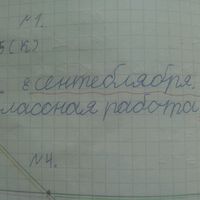 №1.
5(К)
8 сентеблября.
лассная работа
№4.